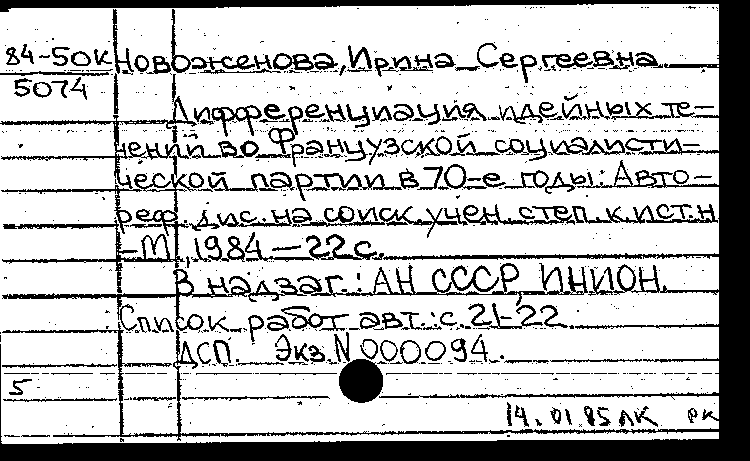 84-50К Новоженова, Ирина Сергеевна
5074
Дифференциация идейных те-
чений во Французской социалисти-
ческой партии в 70-е годы: Авто-
реф. дис. на соиск. учен. степ. к. ист. н
-М., 1984 - 22 с.
В надзаг.: АН СССР, ИНИОН.
Список работ авт.: с. 21-22
ДСП. Экз. N 000094.
5
14.01.85 ЛК РК